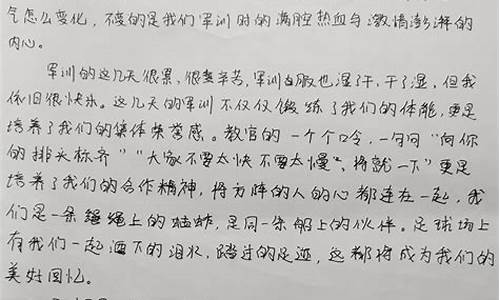 气怎么变化，不变的是我们军训时的满腔热血与激情澎湃的
内心。
军训的这几天很累，很辛苦，军训服也湿了干，干了湿，但我
依旧很快乐。这几天的军训不仅仅锻炼了我们的体能，更是
培养了我们的集体荣誉感。教官的一个个口令，一句句“向你
的排头标齐”“大家不要太快不要太慢”，将就一下”更是
培养了我们的合作精神，将方阵的人的心都连在一起，我
们是一条绳上的蚂蚱，是同一条船上的伙伴。足球场上
有我们一起洒下的泪水，踏过的足迹，这都将成为我们的
美好回忆。